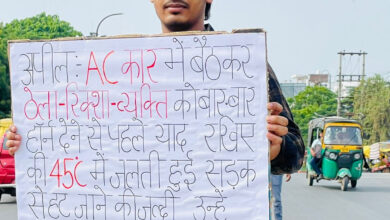 अपील: AC कार में बैठकर
ठेला-रिक्शा-व्यक्ति को बारबार
हॉर्न देने से पहले याद रखिए
की 45℃ में जलती हुई सड़क
से हट जाने की जल्दी उन्हें